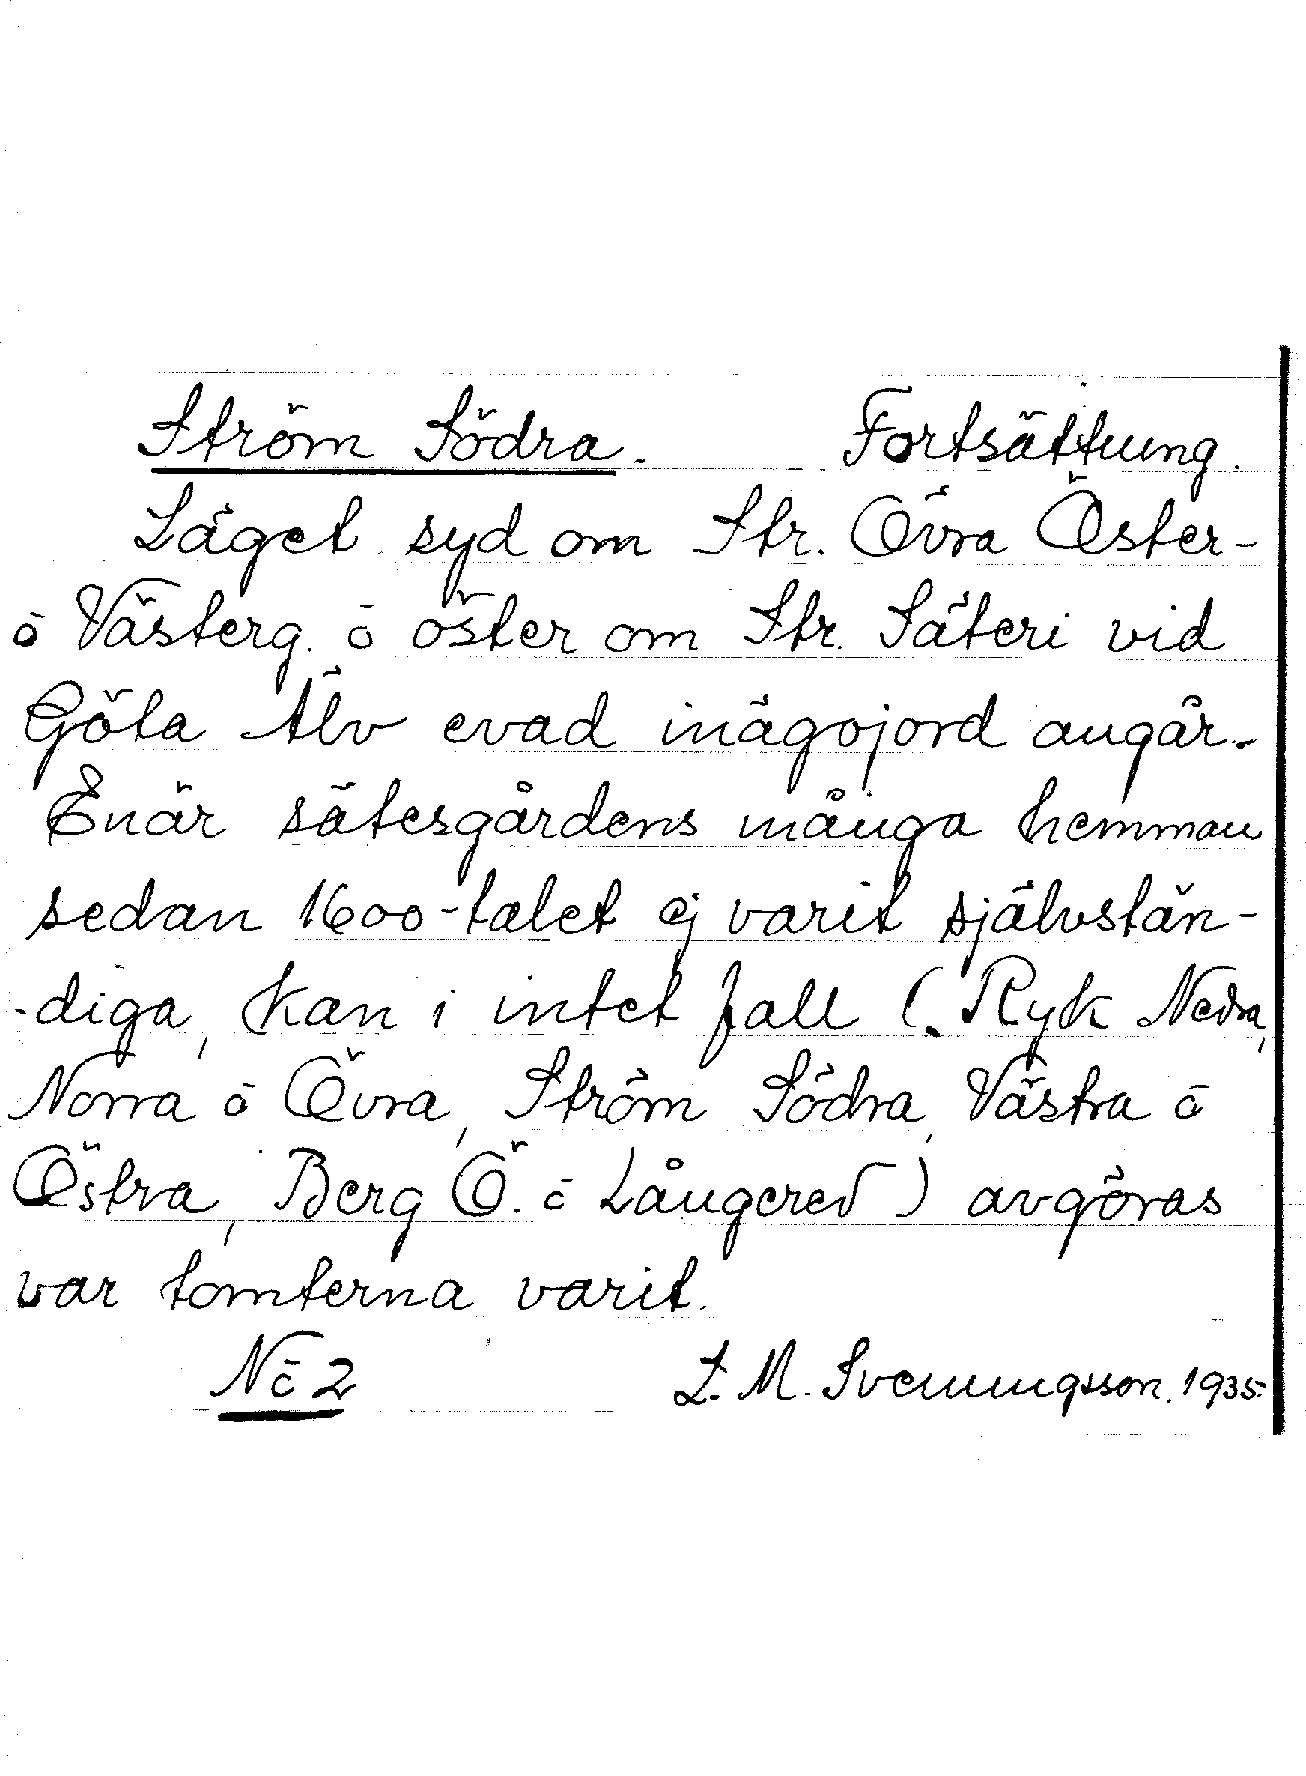 Ström Södra. Fortsättning.
Läget syd om Str. Övra Öster-
ō Västerg. ō öster om Str. Säteri vid
Göta Älv evad inägojord angår.
Enär sätesgårdens många hemman
sedan 1600-talet ej varit självstän-
-diga, kan i intet fall (. Ryk Nedra,
Norra ō Övra, Ström Södra, Västra ō
Östra, Berg Ö. ō Långered) avgöras
var tomterna varit.
No 2 L. M. Svenungsson. 1935.